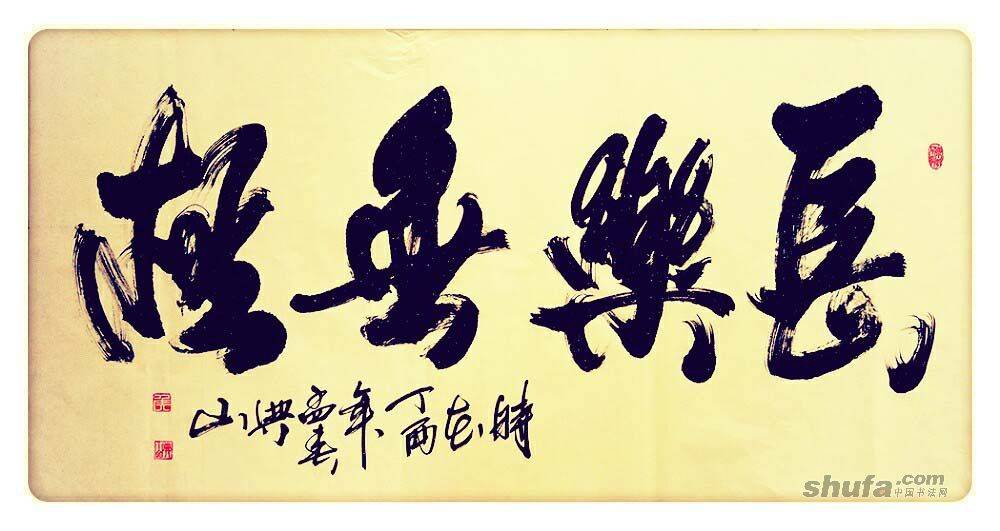 長樂無極
時在丁酉年孟春興山
shufa.com
中国书法网